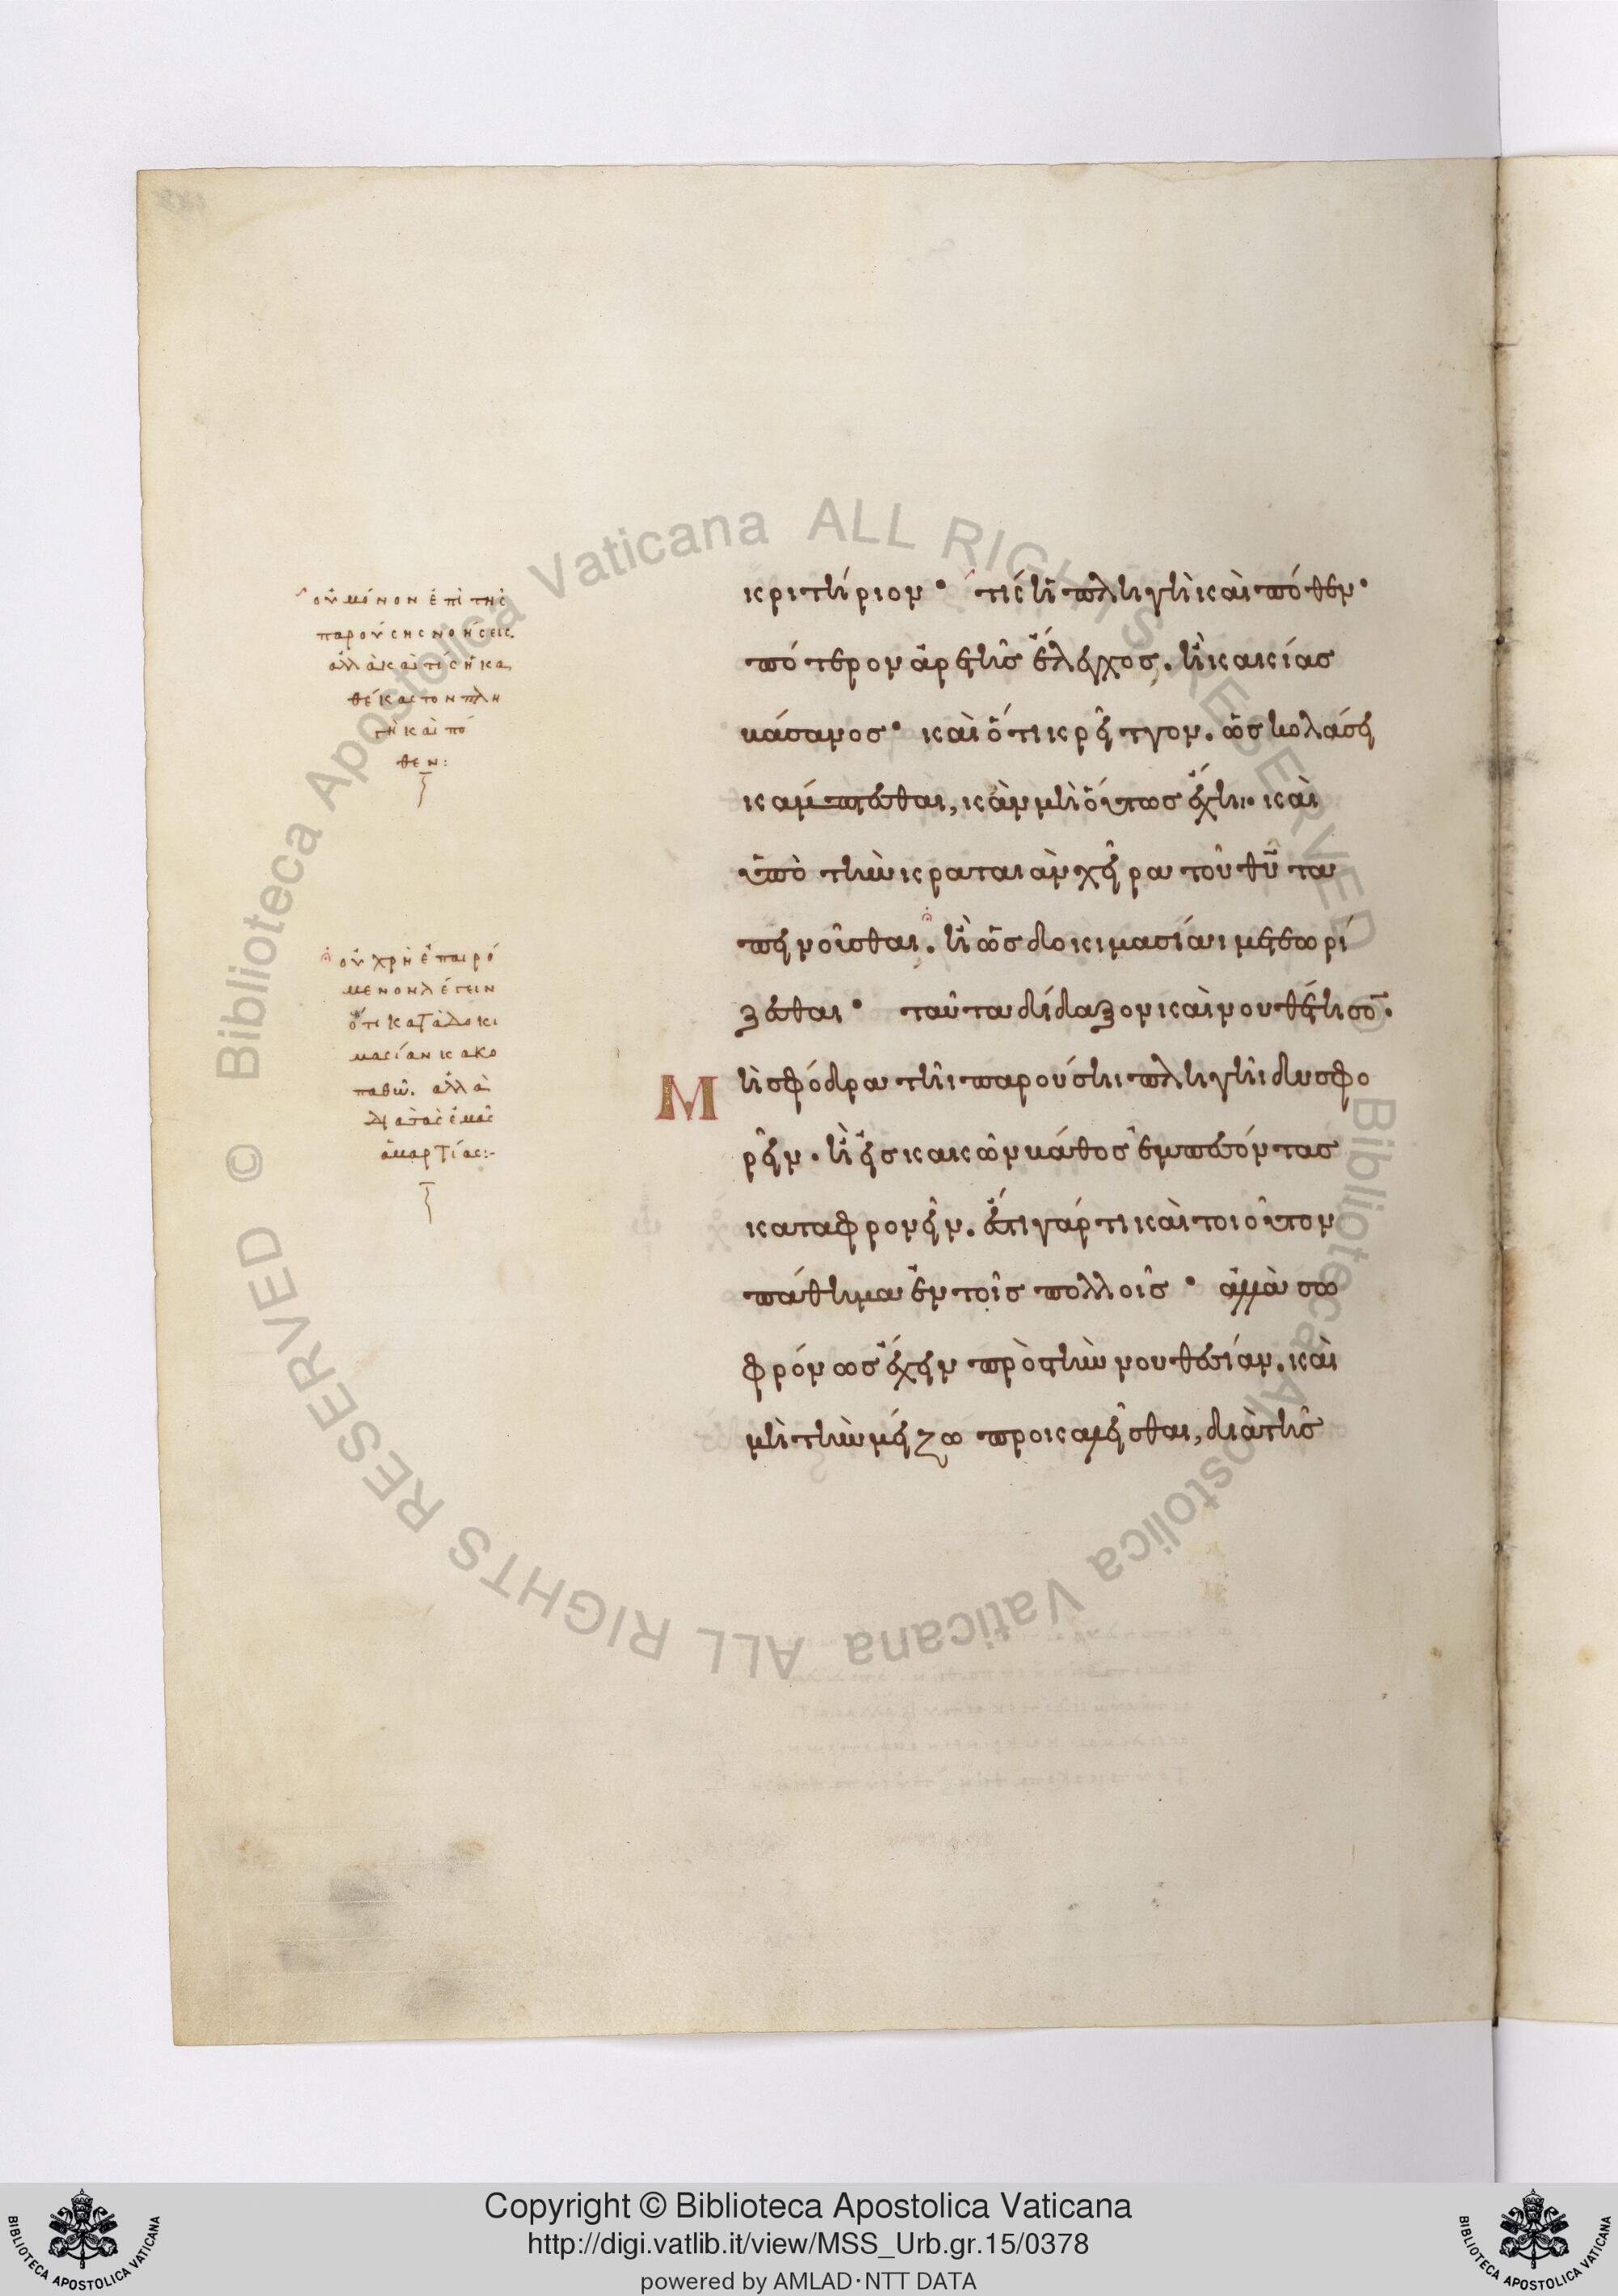 οὐ μόνον ἐπὶ τῆς
παρούσης νοήσεις.
ἀλλὰ καὶ τίς ἡ κα
θέκαστον πλη
γὴ καὶ πό
θεν:
οὐ χρὴ ἐπαιρό
μενον λέγειν
ὅτι κατὰ δοκι
μασίαν κακο
παθῶ. ἀλλὰ
διὰ τὰς ἐμὰς
ἁμαρτίας:-
κριτήριον· τίς ἡ πληγὴ καὶ πόθεν·
πότερον ἀρετῆς ἔλεγχος. ἢ κακίας
βάσανος· καὶ ὅτι κρεῖττον. ὡς κολάσει
κάμπτεσθαι, κἂν μὴ οὕτως ἔχῃ. καὶ
ὑπὸ τὴν κραταιὰν χεῖρα τοῦ θῦ τα
πεινοῦσθαι. ἢ ὡς δοκιμασίαι μετεωρί
ζεσθαι· ταῦτα δίδαξον καὶ νουθέτησον.
Μὴ σφόδρα τῆι παρούσηι πληγῆι δυσφο
ρεῖν. ἢ εἰς κακῶν βάθος ἐμπεσόντας
καταφρονεῖν. ἔστι γάρ τι καὶ τοιοῦτον
πάθημα ἐν τοῖς πολλοῖς· ἀλλὰ σω
φρόνως ἔχειν πρὸς τὴν νουθεσίαν. καὶ
μὴ τὴν μείζω προκαλεῖσθαι, διὰ τῆς
Copyright © Biblioteca Apostolica Vaticana
http://digi.vatlib.it/view/MSS_Urb.gr.15/0378
powered by AMLAD·NTT DATA
BIBLIOTECA APOSTOLICA VATICANA
BIBLIOTECA APOSTOLICA VATICANA
© Biblioteca Apostolica Vaticana ALL RIGHTS RESERVED
© Biblioteca Apostolica Vaticana ALL RIGHTS RESERVED